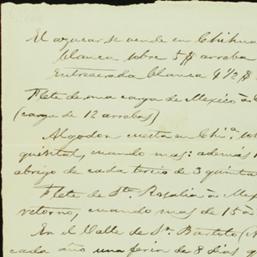 El azucar se vende en Chihua
blanca sobre 5$ arroba
entreverada blanca 4 1/2 $
Flete de una carga de Mexico á
(carga de 12 arrobas)
Algodon cuesta en Chi.ª
quintal, cuando mas: ademas
abrigo de cada tercio de 3 quinta
Flete de Sta. Rosalia á Mex
retorno, cuando mas de 15 á
En el Valle de Sn. Bartolo (
cada año una feria de 8 dias q